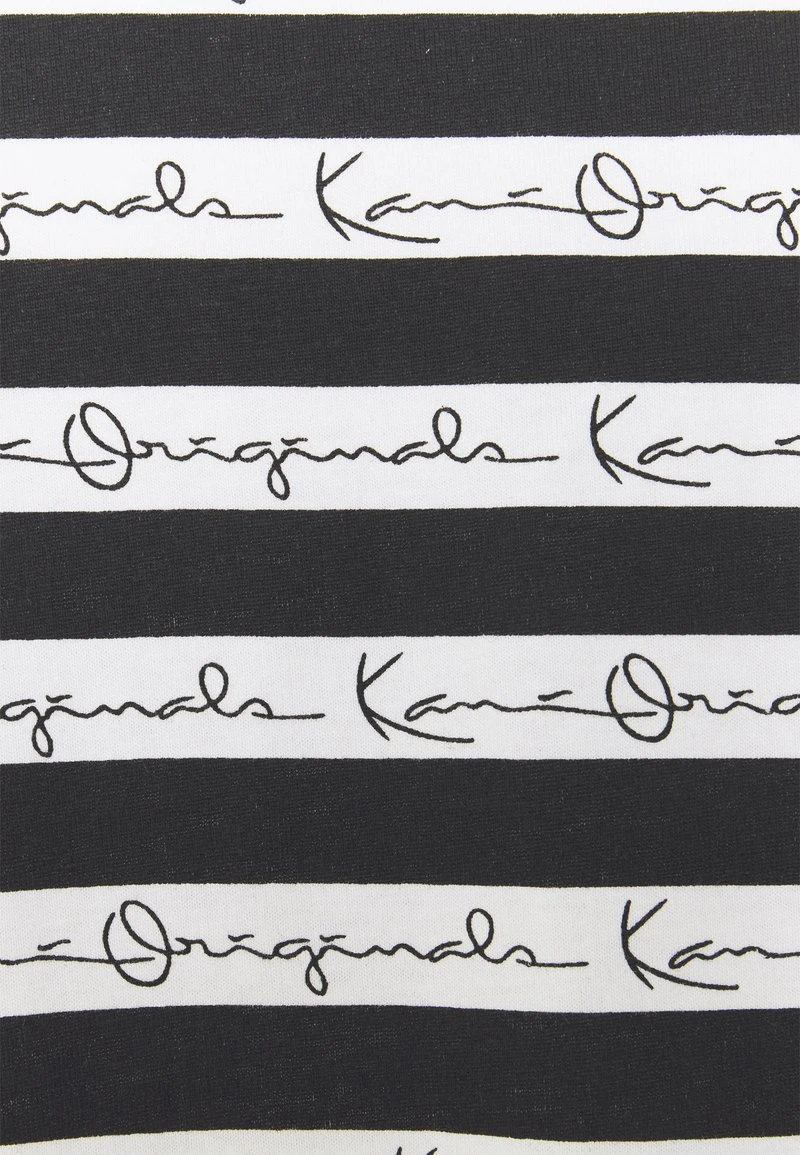 ginals Kani Orig
i Originals Kani
ginals Kani Orig
i Originals Kani